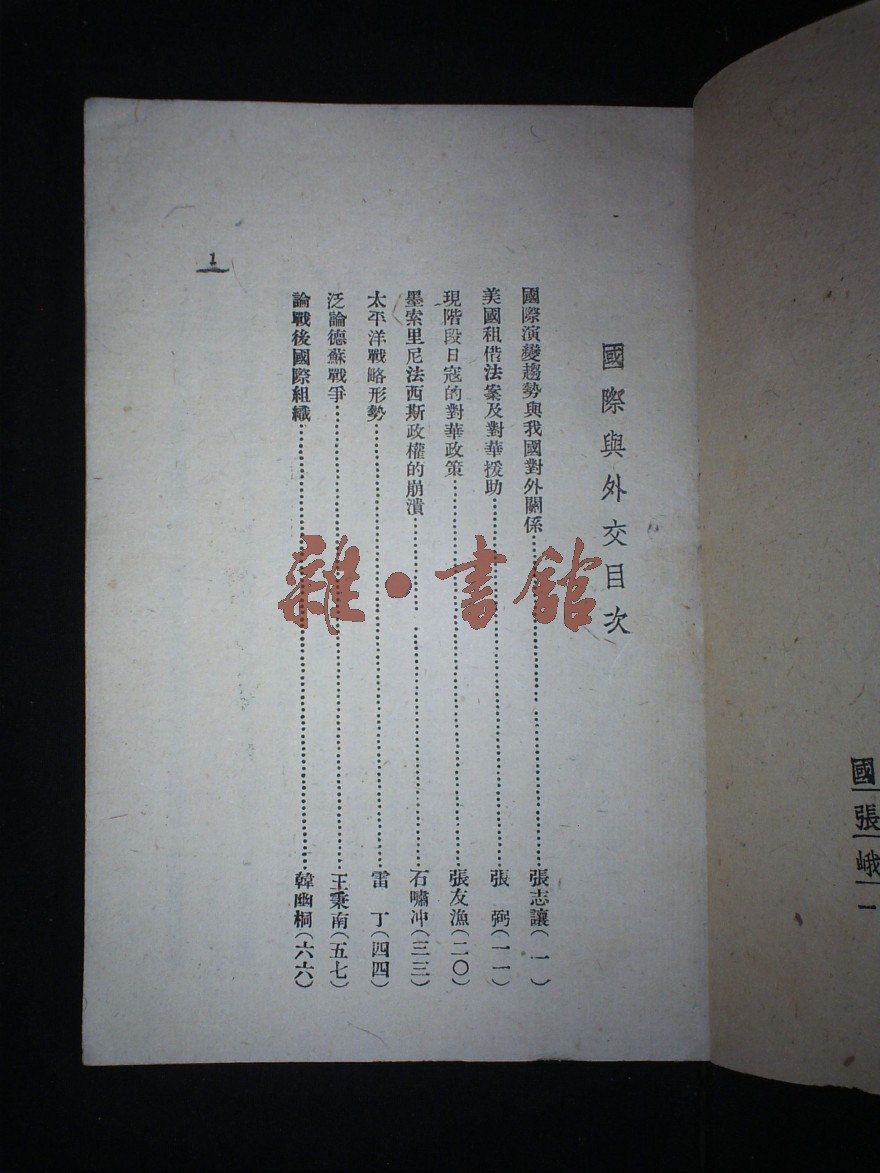 國際與外交目次
國際演變趨勢與我國對外關係……張志讓(一)
美國租借法案及對華援助……張弼(一一)
現階段日寇的對華政策……張友漁(二〇)
墨索里尼法西斯政權的崩潰……石嘯冲(三三)
太平洋戰略形勢……雷丁(四四)
泛論德蘇戰爭……王秉南(五七)
論戰後國際組織……韓幽桐(六六)
1
雜·書館
國
張
峨
一